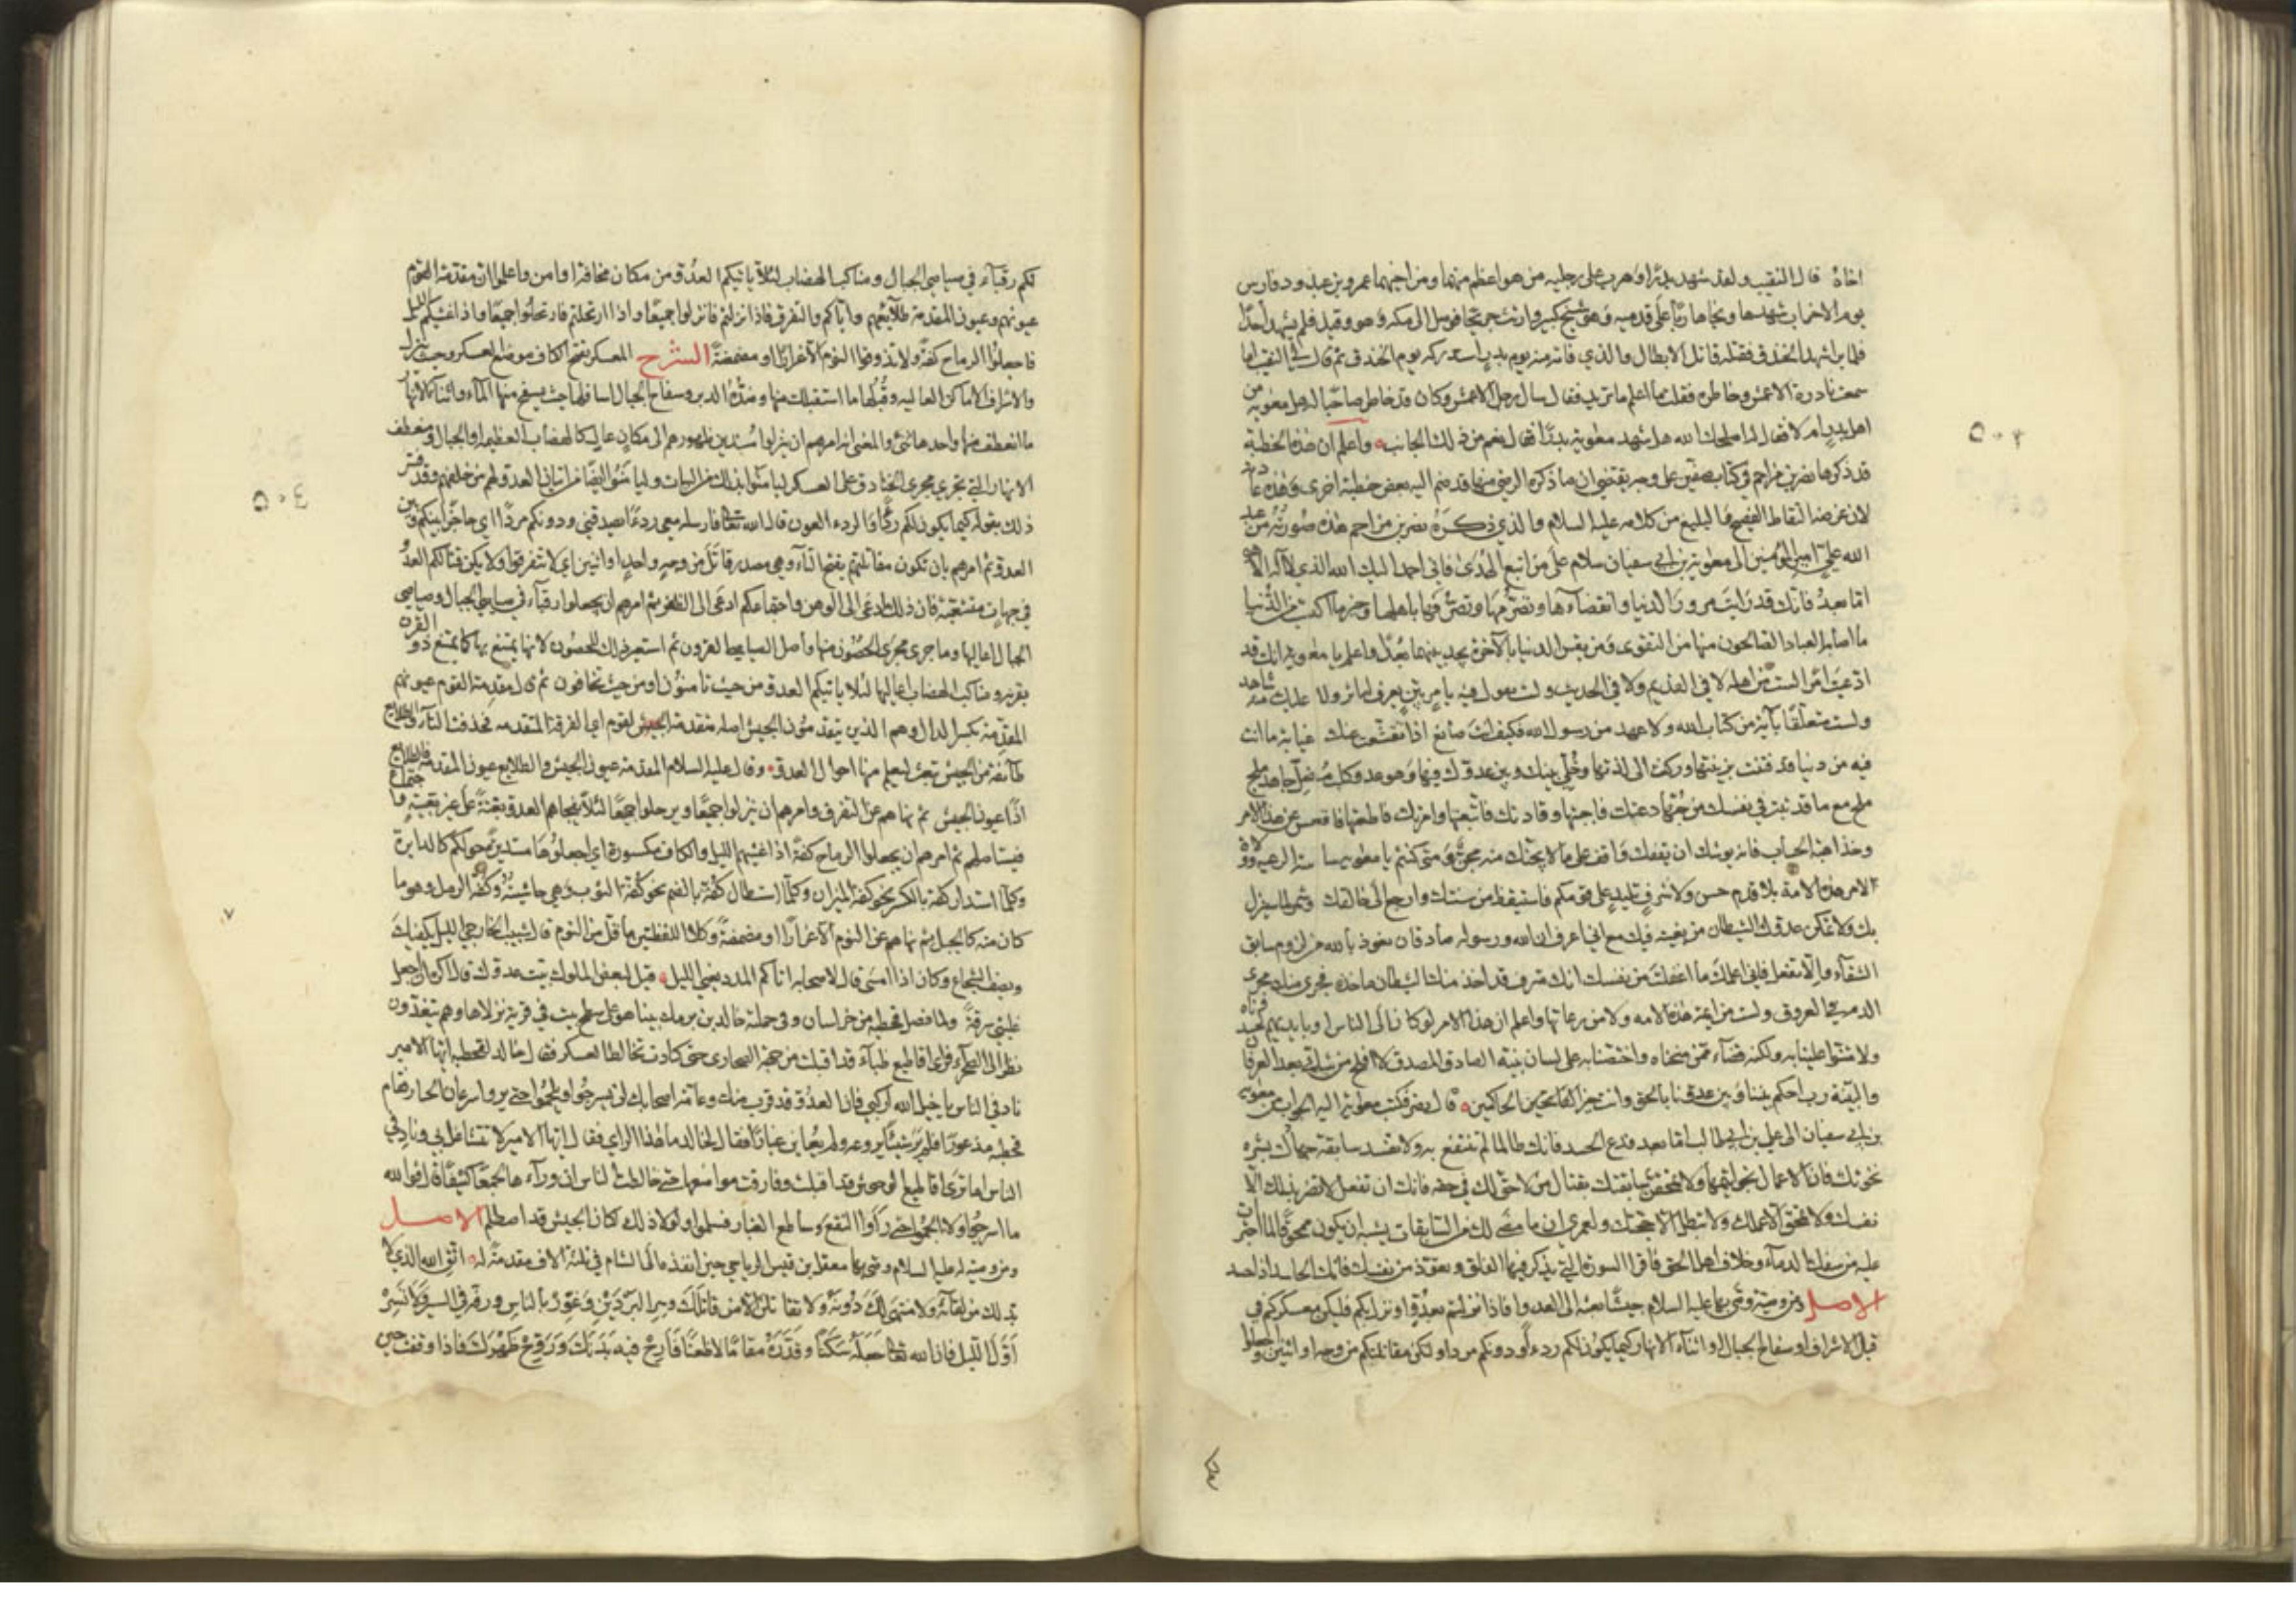 اخاه قال النقيب ولقد شهد بدرا وهرب على رجليه من هو اعظم منهما ومن اخيهما عمرو بن عبد ود فارس
يوم الاحزاب شهدها ونجا هاربا على قدميه وهو شيخ كبير وارتث جريحا فوصل الى مكة وهو وقيذ فلم يشهد احدا
فلما برا شهد الخندق فقتله قاتل الابطال والذي فاته منه يوم بدر استدركه يوم الخندق ثم قال لي النقيب اما
سمعت نادرة الاعمش ومناظره فقلت ما اعلم ما تريد فقال سال رجل الاعمش وكان قد ناظر صاحبا له هل معوية من
اهل بدر ام لا فقال له اصلحك الله هل شهد معوية بدرا فقال نعم من ذلك الجانب واعلم ان هذه الخطبة
قد ذكرها نصر بن مزاحم في كتاب صفين على وجه يقتضي ان ما ذكره الرضي منها قد ضم اليه بعض خطبة اخرى وهذه عادته
لان غرضه التقاط الفصيح والبليغ من كلامه عليه السلام والذي ذكره نصر بن مزاحم هذه صورته من عبد
الله علي امير المؤمنين الى معوية بن ابي سفيان سلام على من اتبع الهدى فاني احمد اليك الله الذي لا اله الا هو
اما بعد فانك قد رايت مرور الدنيا وانقضاءها وتصرمها وتصرفها باهلها وخير ما اكتسب من الدنيا
ما اصابه العباد الصالحون منها من التقوى ومن يقس الدنيا بالآخرة يجد بينهما بعيدا واعلم يا معوية انك قد
ادعيت امرا لست من اهله لا في القديم ولا في الحديث ولست تقول فيه بامر بين يعرف له اثر ولا عليك منه شاهد
ولست متعلقا بآية من كتاب الله ولا عهد من رسول الله فكيف انت صانع اذا تقشعت عنك غيابة ما انت
فيه من دنيا قد فتنت بزينتها وركنت الى لذتها وخلي بينك وبين عدوك فيها وهو عدو وكلب مضل جاهد مليح
ملح مع ما قد ثبت في نفسك من جهتها دعتك فاجبتها وقادتك فاتبعتها وامرتك فاطعتها فاقعس عن هذا الامر
وخذ اهبة الحساب فانه يوشك ان يقفك واقف على ما لا يجنك منه مجن ومتى كنتم يا معوية ساسة الرعية وولاة
الامر هذه الامة بلا قدم حسن ولا شرف تليد على قومكم فاستيقظ من سنتك وارجع الى خالقك وشمر لما سينزل
بك ولا تمكن عدوك الشيطان من بغيته فيك مع اني اعرف ان الله ورسوله صادقان نعوذ بالله من لزوم سابق
الشقاء والا تفعل فاني اعلمك ما اغفلت من نفسك انك مترف قد اخذ منك الشيطان ماخذه فجرى منك مجرى
الدم في العروق ولست من ايمة هذه الامة ولا من رعاتها واعلم ان هذا الامر لو كان الى الناس او بايديهم لحسدوناه
ولامتنوا علينا به ولكنه قضاء ممن منحناه واختصنا به على لسان نبيه الصادق المصدق لا افلح من شك بعد العرفان
والبينة رب احكم بيننا وبين عدونا بالحق وانت خير الحاكمين قال نصر فكتب معوية اليه الجواب من معوية
بن ابي سفيان الى علي بن ابي طالب اما بعد فدع الحسد فانك طالما لم تنتفع به ولا تفسد سابقة جهادك بشره
نخوتك فان الاعمال بخواتيمها ولا تمحق سابقتك بقتال من لا حق لك في حقه فانك ان تفعل لا تضر بذلك الا
نفسك ولا تمحق الا عملك ولا تبطل الا حجتك ولعمري ان ما مضى لك من السابقات يشبه ان يكون ممحوقا لما اجترات
عليه من سفك الدماء وخلاف اهل الحق فاقرا السورة التي يذكر فيها الفلق وتعوذ من نفسك فانك الحاسد اذا حسد
الاصل ومن وصية وصى بها عليه السلام جيشا بعثه الى العدو فاذا نزلتم بعدو او نزل بكم فليكن معسكركم في
قبل الاشراف او سفاح الجبال او اثناء الانهار كيما يكون لكم ردءا ودونكم مردا ولتكن مقاتلتكم من وجه او اثنين واجعلوا
٥٠٢
لكم رقباء في صياصي الجبال ومناكب الهضاب لئلا ياتيكم العدو من مكان مخافة او امن واعلموا ان مقدمة القوم
عيونهم وعيون المقدمة طلائعهم واياكم والتفرق فاذا نزلتم فانزلوا جميعا واذا ارتحلتم فارتحلوا جميعا واذا غشيكم الليل
فاجعلوا الرماح كفة ولا تذوقوا النوم الا غرارا او مضمضة الشرح المعسكر بفتح الكاف موضع العسكر وحيث ينزل
والاشراف الاماكن العالية وقبلها ما استقبلك منها وضده الدبر وسفاح الجبال اسافلها حيث يسفح منها الماء واثناء الانهار
ما انعطف منها واحدها ثني والمعنى انه امرهم ان ينزلوا مسندين ظهورهم الى مكان عال كالهضاب العظيمة او الجبال او منعطف
الانهار التي تجري مجرى الخنادق على العسكر ليامنوا بذلك من البيات وليامنوا ايضا من اتيان العدو لهم من خلفهم وقد فسر
ذلك بقوله كيما يكون لكم ردءا والردء العون قال الله تعالى فارسله معي ردءا يصدقني ودونكم مردا اي حاجزا بينكم وبين
العدو ثم امرهم بان تكون مقاتلتهم بفتح التاء وهي مصدر قاتل من وجه واحد او اثنين اي لا تتفرقوا ولا يكن قتالكم العدو
في جهات متشعبة فان ذلك ادعى الى الوهن واجتماعكم ادعى الى الظفر ثم امرهم ان يجعلوا رقباء في صياصي الجبال وصياصي
الجبال اعاليها وما جرى مجرى الحصون منها واصل الصياصي القرون ثم استعير ذلك للحصون لانها يمتنع بها كما يمتنع ذو القرن
بقرنه ومناكب الهضاب اعاليها لئلا ياتيكم العدو من حيث تامنون او من حيث تخافون ثم قال مقدمة القوم عيونهم
المقدمة بكسر الدال وهم الذين يتقدمون الجيش اصله مقدمة القوم اي الفرقة المتقدمة فحذفت التاء والطلايع
طائفة من الجيش تبعث ليعلم منها احوال العدو وقال عليه السلام المقدمة عيون الجيش والطلايع عيون المقدمة فالطلايع
اذا عيون الجيش ثم نهاهم عن التفرق وامرهم ان ينزلوا جميعا ويرحلوا جميعا لئلا يفجاهم العدو بغتة على غير تعبية واجتماع
فيستاصلهم ثم امرهم ان يجعلوا الرماح كفة اذا غشيهم الليل والكاف مكسورة اي اجعلوها مستديرة حولكم كالدايرة
وكلما استدار كفة بالكسر نحو كفة الميزان وكلما استطال كفة بالضم نحو كفة الثوب وهي حاشيته وكفة الرمل وهو ما
كان منه كالحبل ثم نهاهم عن النوم الا غرارا او مضمضة وكلا اللفظتين ما قل من النوم قال شبيب الخارجي الليل يكفيك
ونصف الشجاع وكان اذا امسى قال لاصحابه اتاكم المدد يعني الليل قيل لبعض الملوك بيت عدوك قال اكره ان اجعل
غلبتي سرقة ولما فصل قحطبة من خراسان وفي جملته خالد بن برمك بينا هو على سطح بيت في قرية نزلاها وهم يتغدون
نظر الى الصحراء فراى اقاطيع ظباء قد اقبلت من جهة الصحارى حتى كادت تخالط العسكر فقال خالد لقحطبة ايها الامير
ناد في الناس يا خيل الله اركبي فان العدو قد قرب منك وعامة اصحابك لن يسرجوا ويلجموا حتى يروا سرعان الخيل فقام
قحطبة مذعورا فلم ير شيئا يروعه ولم يعاين غبارا فقال لخالد ما هذا الراي فقال ايها الامير لا تتشاغل بي وناد في
الناس اما ترى اقاطيع الوحوش قد اقبلت وفارقت مواضعها حتى خالطت الناس ان وراءها لجمعا كثيفا قال فوالله
ما اسرجوا ولا الجموا حتى راوا النقع وساطع الغبار فسلموا ولولا ذلك لكان الجيش قد اصطلم الاصل
ومن وصية له عليه السلام وصى بها معقل ابن قيس الرياحي حين انفذه الى الشام في ثلثة الاف مقدمة له اتق الله الذي لا
بد لك من لقائه ولا منتهى لك دونه ولا تقاتلن الا من قاتلك وسر البردين وغور بالناس ورفه في السير ولا تسر
اول الليل فان الله تعالى جعله سكنا وقدره مقاما لا ظعنا فارح فيه بدنك وروح ظهرك فاذا وقفت حين
٥٠٣